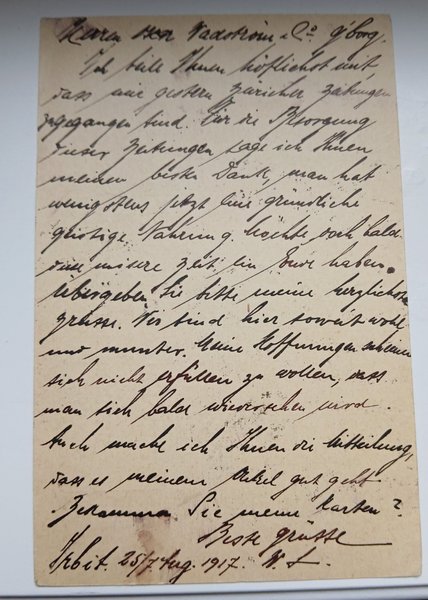 Herren Wadström & Co. G'borg.
Ich teile Ihnen höflichst mit,
dass mir gestern Züricher Zeitungen
zugegangen sind. Für die Besorgung
dieser Zeitungen sage ich Ihnen
meinen besten Dank, man hat
wenigstens jetzt eine gründliche
geistige Nahrung. Möchte doch bald
unsere Zeit ein Ende haben.
Übergeben Sie bitte meine herzlichste
grüsse. Wir sind hier soweit wohl
und munter. Meine Hoffnungen scheinen
sich nicht erfüllen zu wollen, dass
man sich bald wiedersehen wird.
Auch mache ich Ihnen die Mitteilung,
dass es meinem Onkel gut geht.
Bekommen Sie meine Karten?
Beste grüsse
Irbit. 25/7 Aug. 1917.